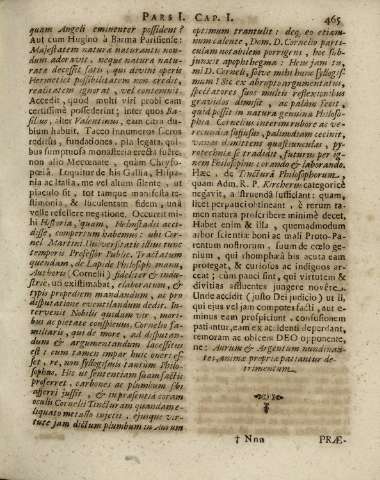 PARS I. CAP. I. 465
quam Angeli eminenter possident?
Aut cum Hugino à Barma Pausiense:
Majestatem natura naturantis non-
dum adoravit, neque natura natu-
rata decessit satis, qui divini operis
Hermetici possibilitatem non credit,
realitatem ignorat, vel contemnit.
Accedit, quod multi viri probi eam
certissimè possederint; inter quos Ba-
silius, aliter Valentinus, eam etiam vi-
bium habuit. Taceo innumeros sacros
redditus, fundationes, pia legata, qui-
bus sumptuosa monasteria erecta fuêre,
non alio Mecœnate, quam Chryso-
pœiâ. Loquitur de his Gallia, Hispa-
nia ac Italia, me vel alium silente, ut
piaculo sit, tot tamque manifesta te-
stimonia, & luculentam fidem, unâ
velle refellere negatione. Occurrit mi-
hi Historia, quam, Helmstadii acci-
disse, compertum habemus: ubi Cor-
nel Martini Universitatis illius tunc
temporis Professor Public. Tractatum
quendam, de Lapide Philosoph. manu,
Authoris (Cornelii) subtiliter & indu-
striè, uti existimabat, elaboratum, &
typis propediem mandandum, ac pro
disputatione eventilandum dedit. In-
tervenit Nobilis quidam vir, mori-
bus ac pœtate conspicuus, Cornelio fa-
miliaris, qui de more, ad disputan-
dum & argumentandum lacessitus
est: cum tamen impar huic oneri es-
set, re, non syllogismis tantum Philo-
sopho, His ut sententiam suam factis
proferret, carbones ac plumbum sibi
afferri jussit, & in præsentia coram
oculis Cornelii Tincturam quandam è
liquato metallo injecit, ejusque vir-
tute jam dictum plumbum in Aurum
optimum transtulit: deq; eo etiam-
num calente, Dom. D. Cornelio parti-
culam notabilem porrigens, hoc sub-
junxit apophthegma: Hem jam tu,
mi D. Corneli, solve mihi hunc syllogis-
mum! Sic ex abrupto argumentatus,
spectatores suos multis reflexionibus
gravidos dimisit, ac palàm fecit,
quid possit in natura genuina Philoso-
phia. Cornelius interim rubore ac ve-
recundia suffusus, palinodiam cecinit,
vanas dimittens quæstiunculas, py-
rotechnia se tradidit, futurus per i-
gnem Philosophus orando & laborando.
Hæc, de Tinctura Philosophorum,
quam Adm. R. P. Kircherus categoricè
negavit, astruendâ sufficiant: quam,
licet perpauci obtineant, è rerum ta-
men natura proscribere minimè decet.
Habet enim & illa, quemadmodum
arbor scientiæ boni ac mali Proto-Pa-
rentum nostrorum, suum de cœlo ge-
nium, qui rhomphæâ bis acuta eam
protegat, & curiosos ac indignos ar-
ceat; cum pauci sint, qui virtutem &
divitias affluentes jungere novêre.
Unde accidit (justo Dei judicio) ut ii,
qui ejus vel jam compotes facti, aut e-
minus eam prospiciunt, confusionem
patiantur, eam ex accidenti deperdant,
remoram ac obicem DEO opponente,
ne: Aurum & Argentum nundinan-
tes, animæ propriæ patiantur de-
trimentum.
† Nnn PRÆ-